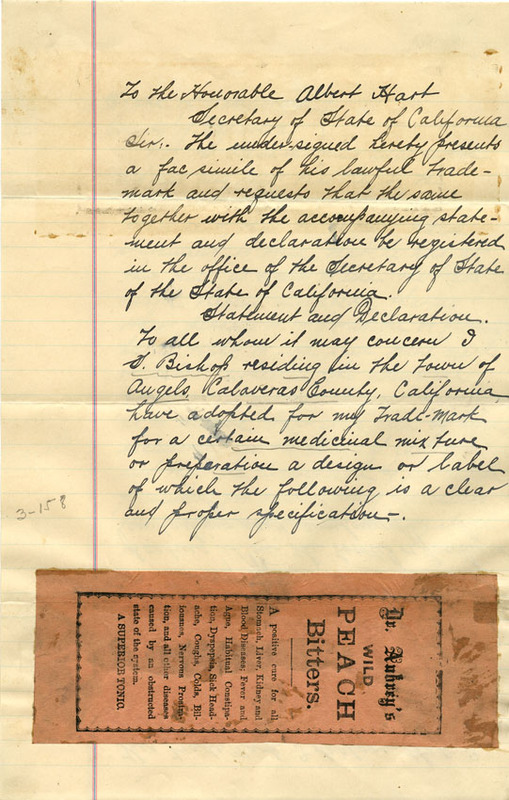 To the Honorable Albert Hart
Secretary of State of California
Sir:. The undersigned hereby presents
a fac simile of his lawful trade-
mark and requests that the same
together with the accompanying state-
ment and declaration be registered
in the office of the Secretary of State
of the State of California.
Statement and Declaration.
To all whom it may concern I
Bishop residing in the town of
Angels, Calaveras County, California,
have adopted for my Trade-Mark
for a certain medicinal mixture
or preperation a design or label
of which the following is a clear
and proper specification-.
3-158
Dr. Aubrey's
WILD
PEACH
Bitters.
A positive cure for all
Stomach, Liver, Kidney and
Blood Diseases; Fever and
Ague, Habitual Constipa-
tion, Dyspepsia, Sick Head-
ache, Coughs, Colds, Bil-
iousness, Nervous Prostra-
tion, and all other diseases
caused by an obstructed
state of the system.
A SUPERIOR TONIC.